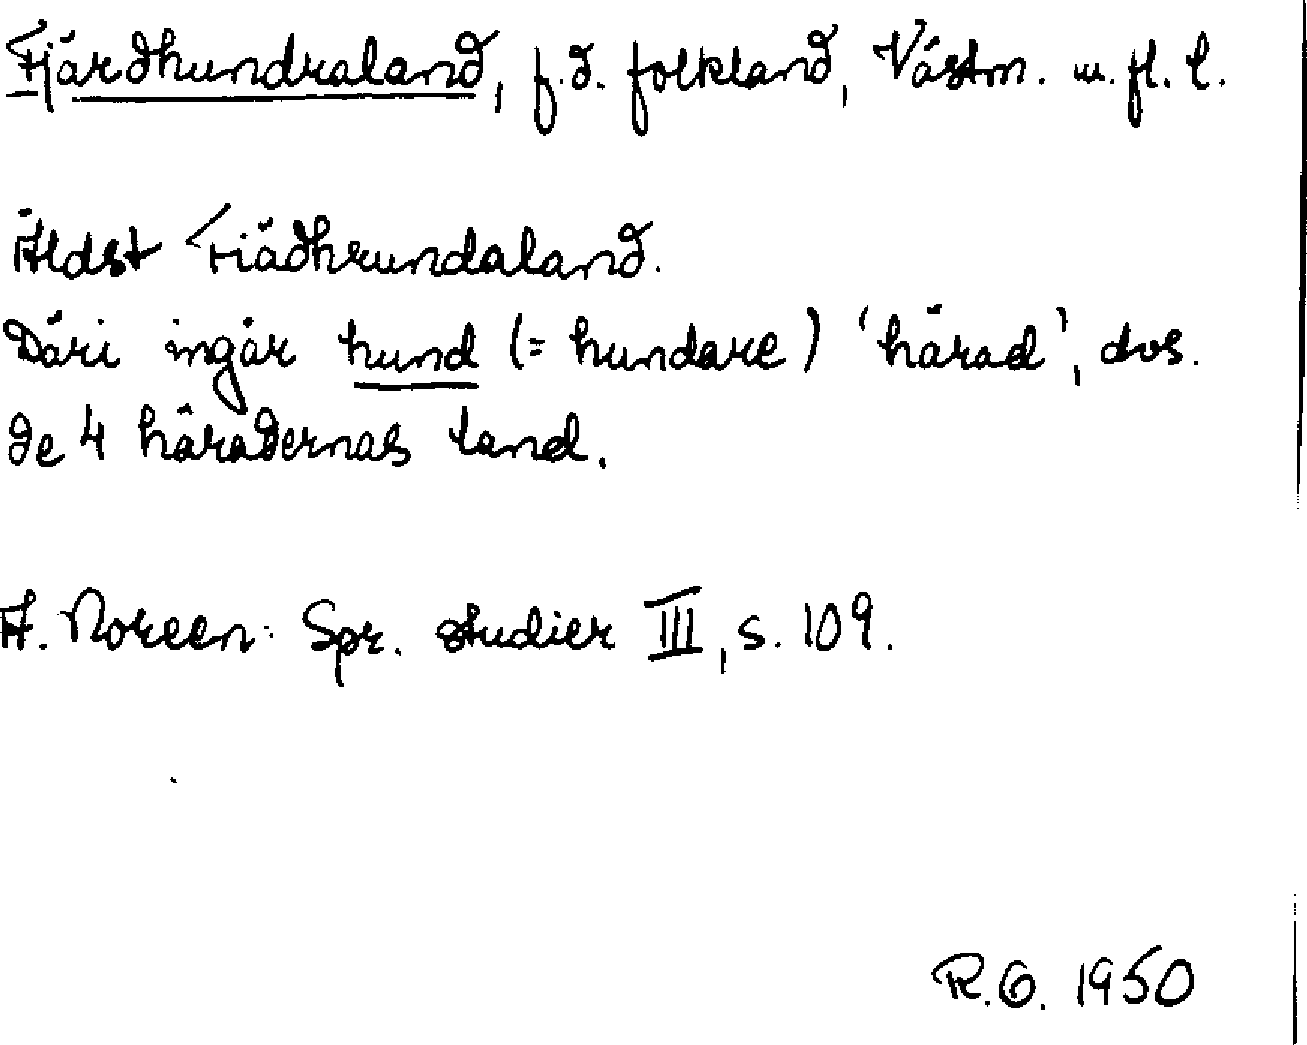 Fjärdhundraland, f.d. folkland, Västm. m. fl. l.
Äldst Fiädhrundaland.
Däri ingår hund (= hundare) 'härad', dvs.
de 4 häradernas land.
A. Noreen: Spr. studier III, s. 109.
R.O. 1950